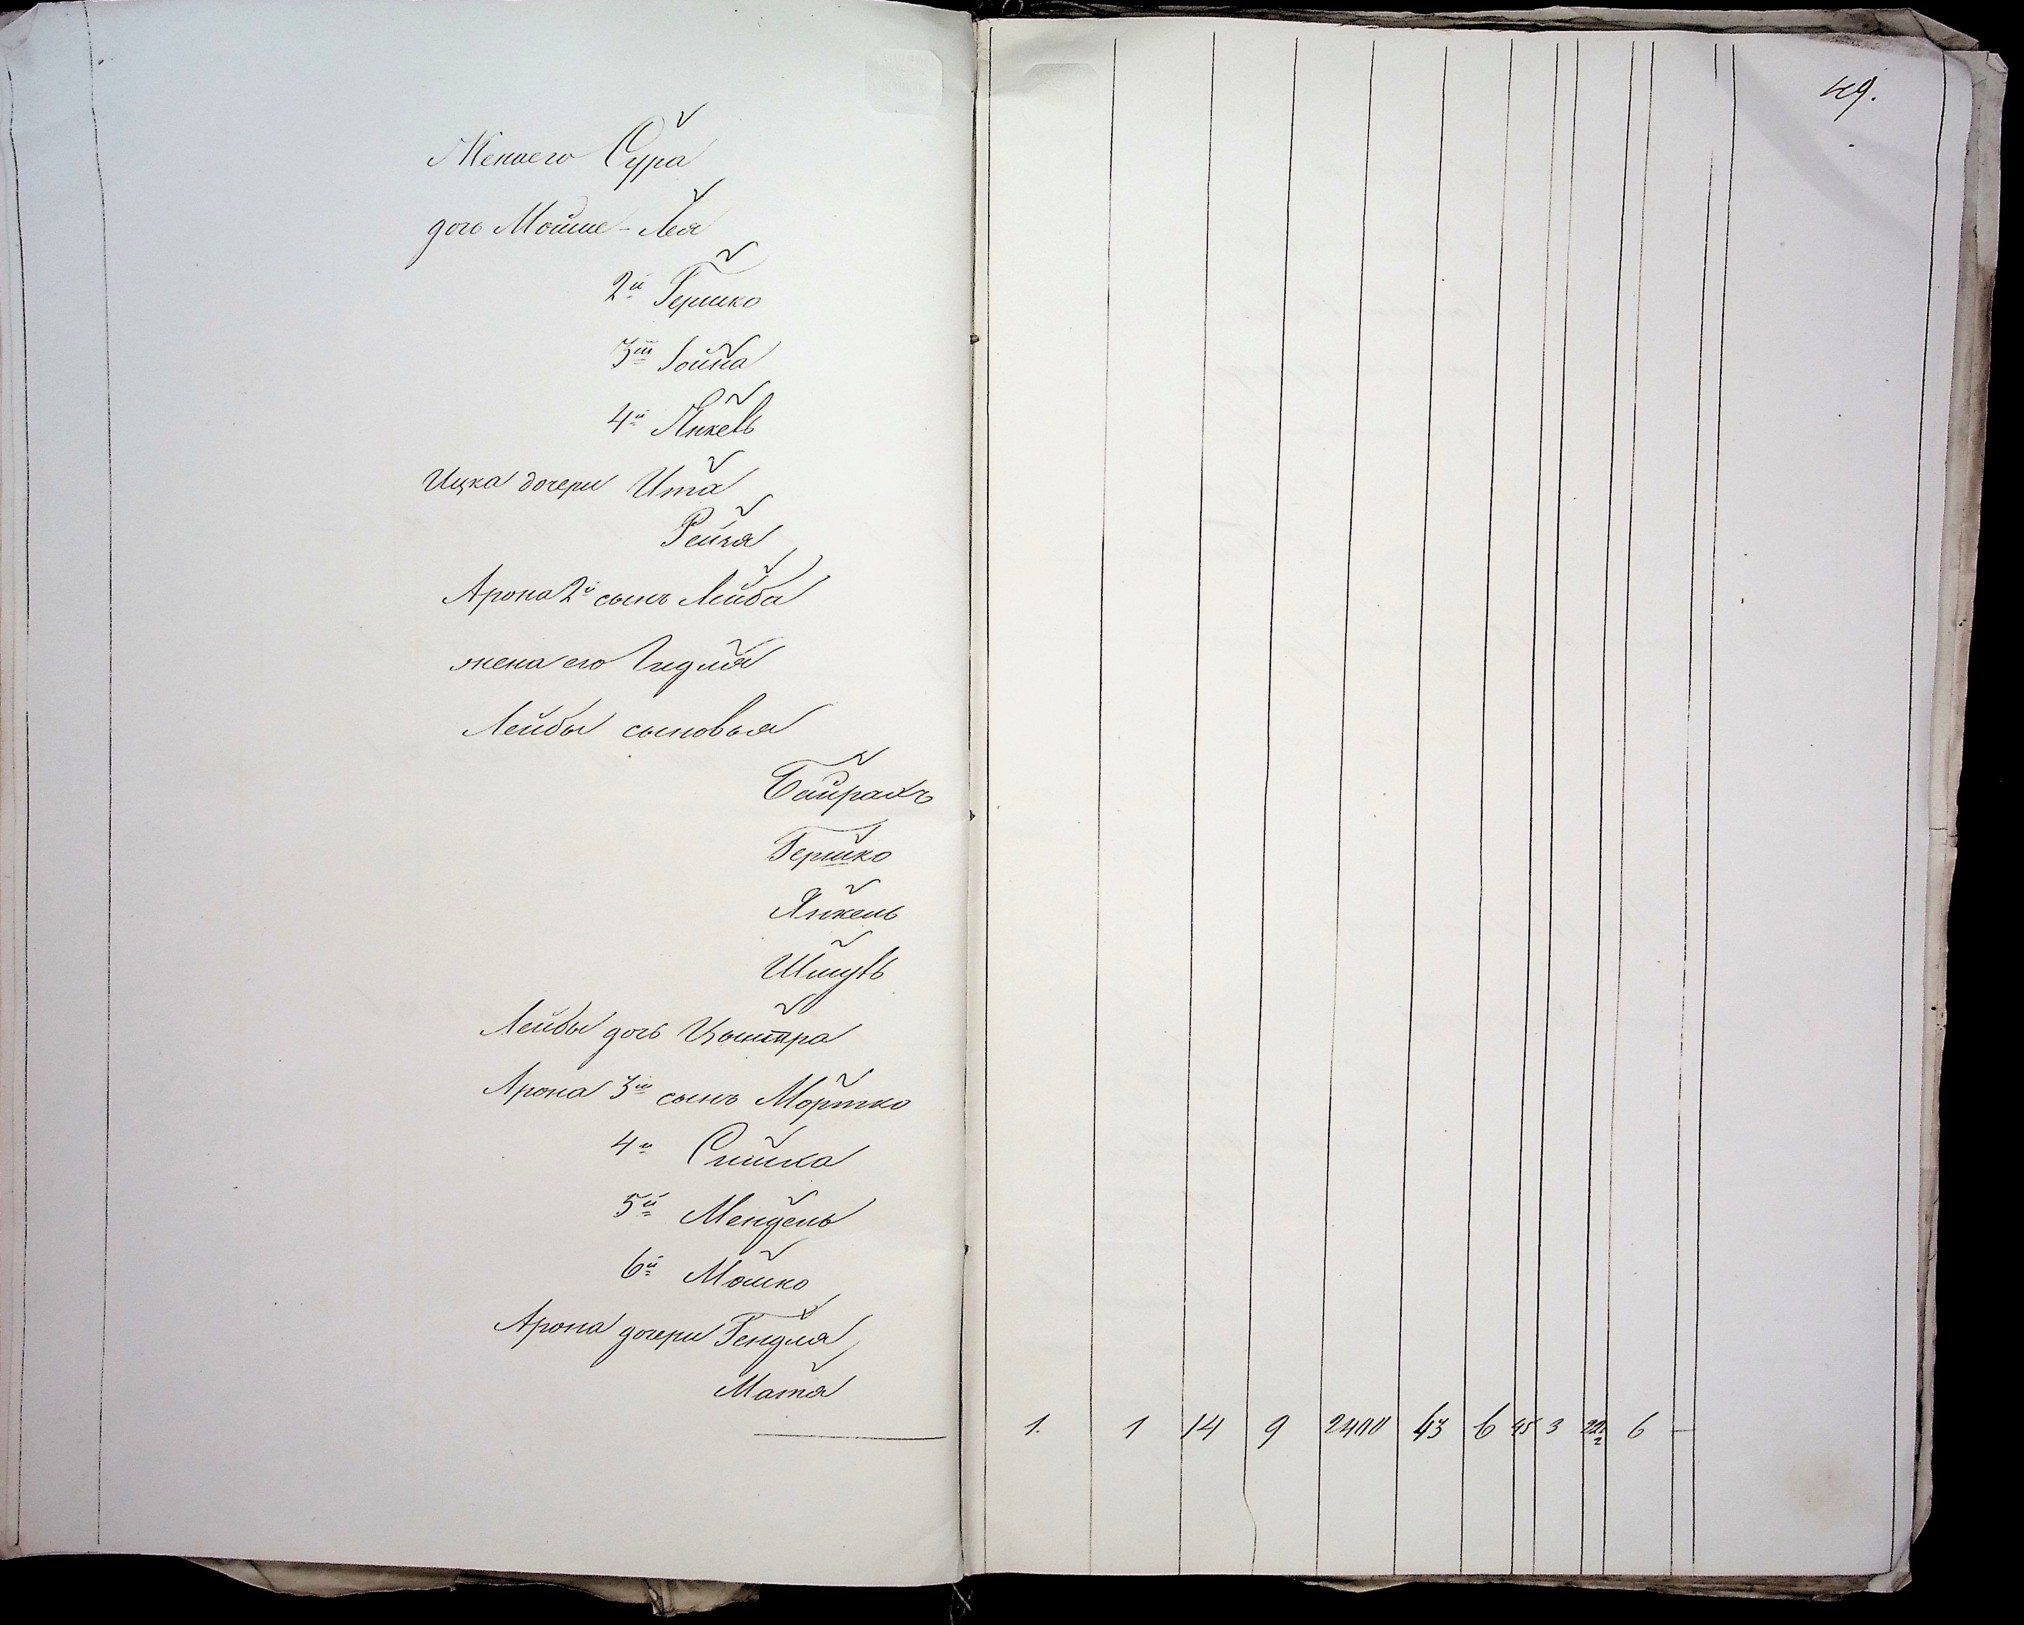 49.
Жена его Сура
доч Мошко - Лея
2й Гершко
3й Іойна
4й Янкель
Ицка дочери Ита
Рейзя
Арона 2й сынъ Лейба
жена его Гидля
Лейбы сыновья
Байрахъ
Гершко
Янкель
Шмуль
Лейбы дочь
Арона 3й сынъ Мортко
4й
5й Мендель
6й Мошко
Арона дочери Гендля
Матя
1. 1 14 9 43 6 45 3 22 1/2 6 —